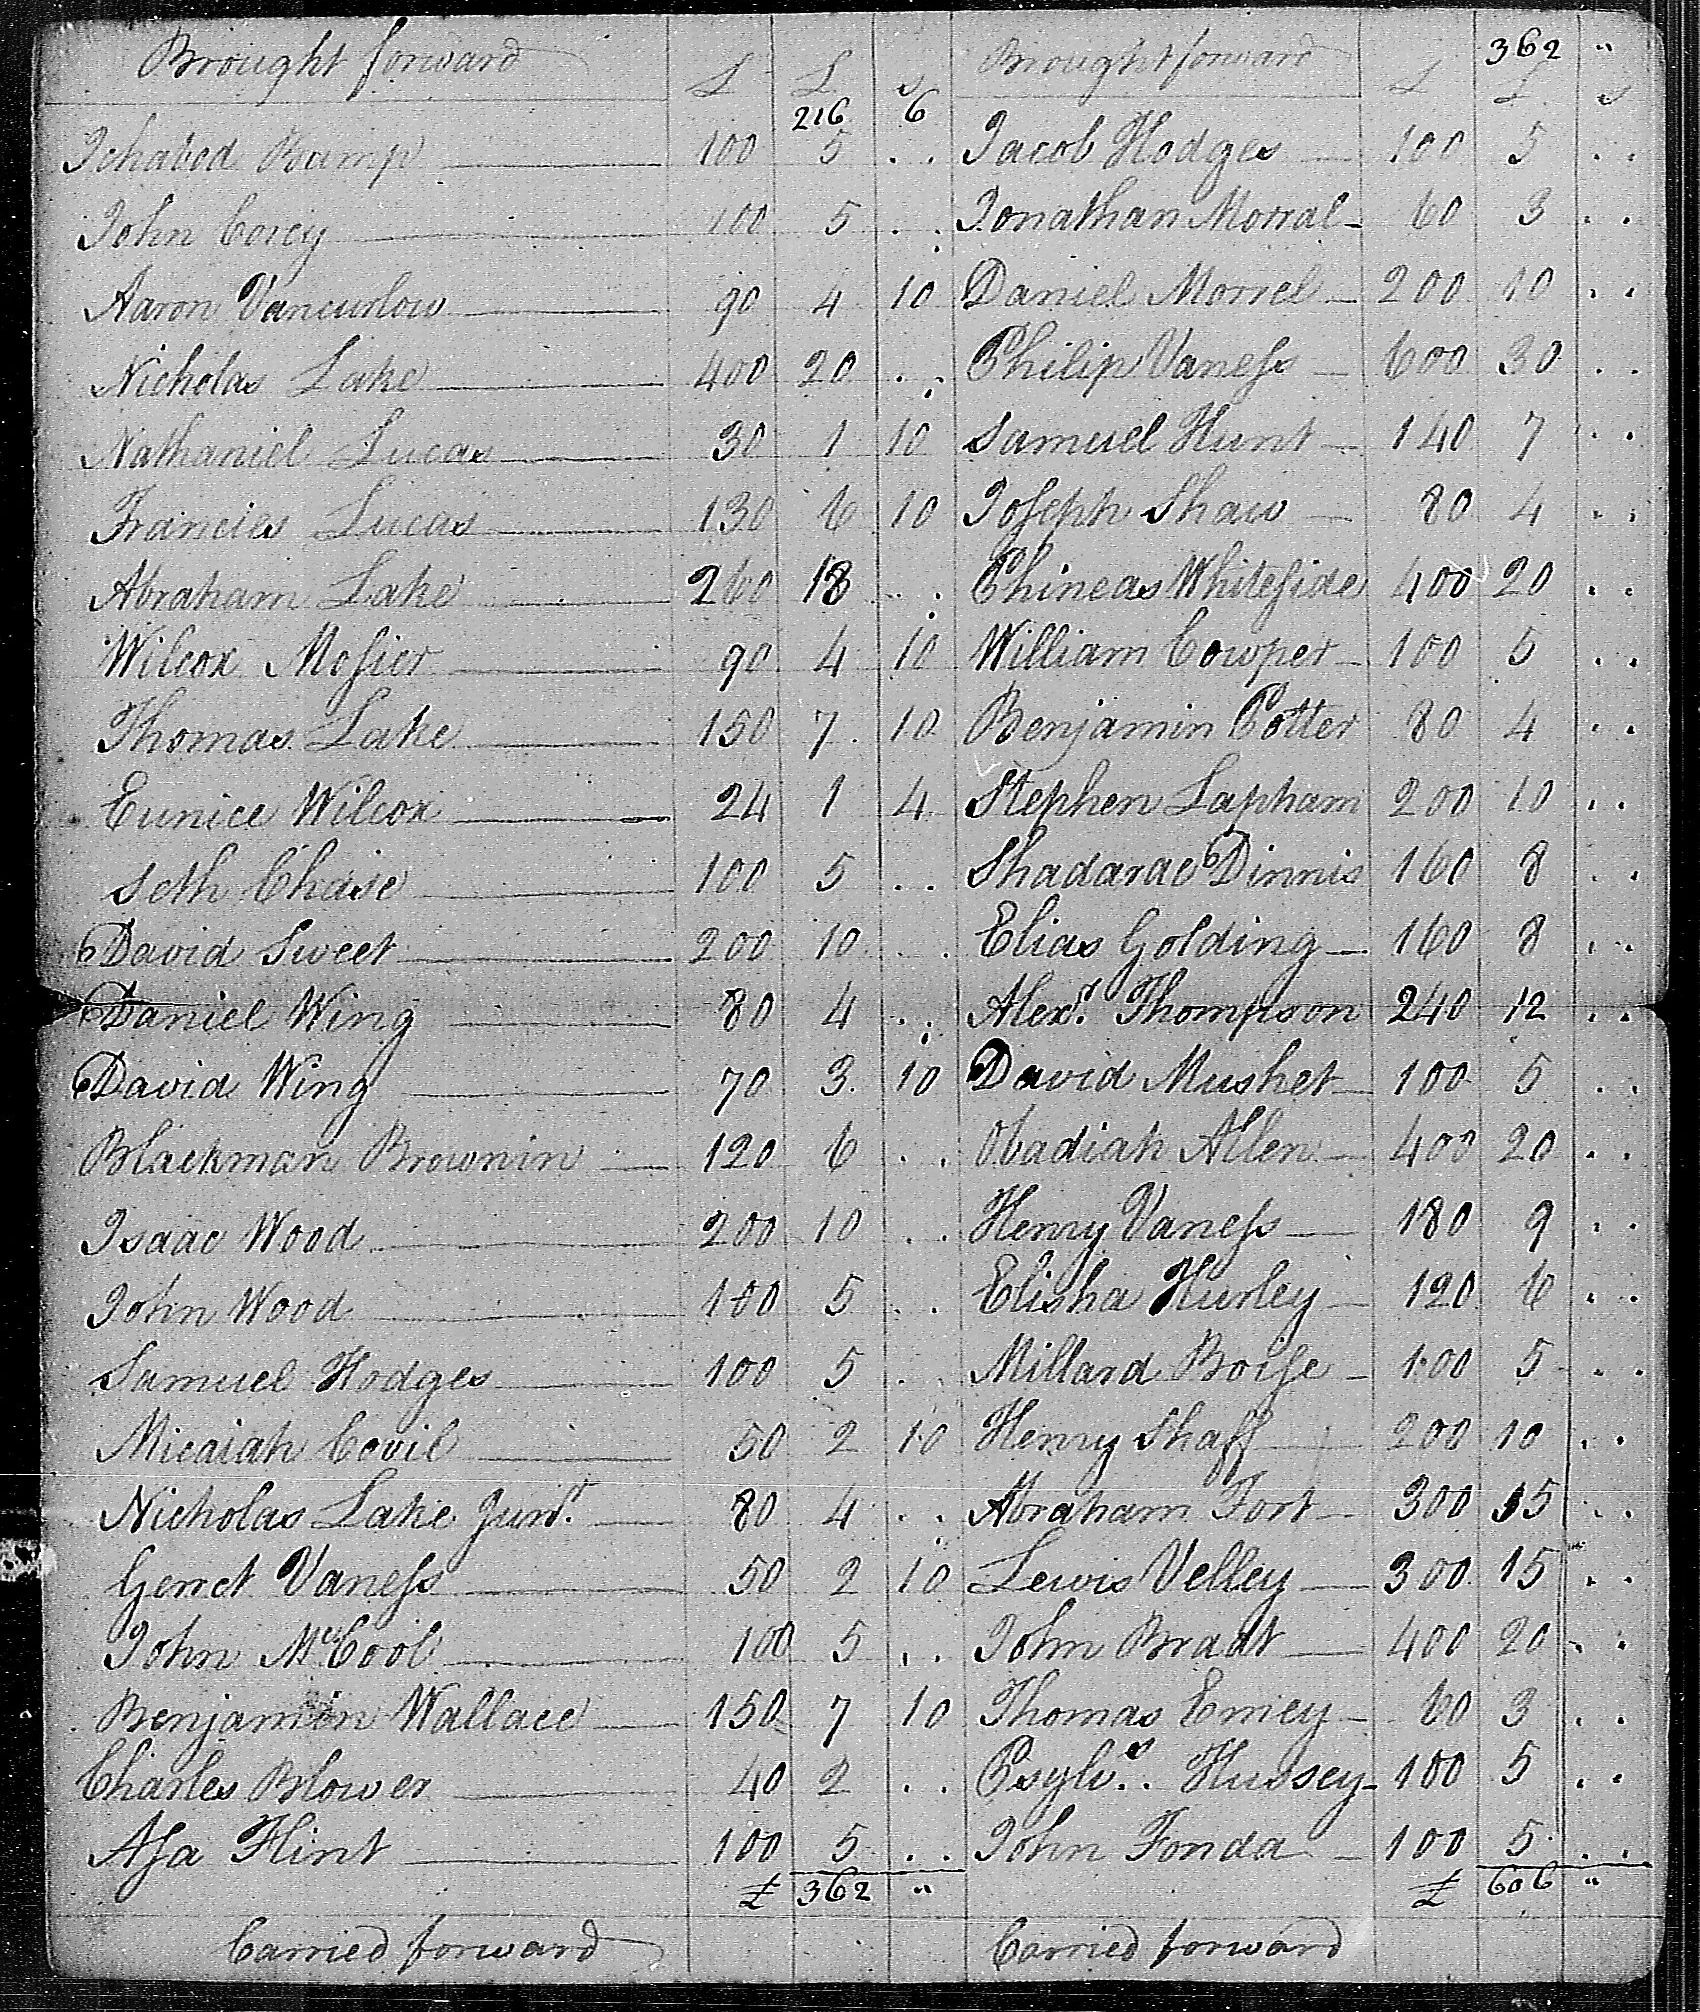 Brought forward £ £ s
216 6
Ichabod Bump 100 5 . .
John Corey 100 5 . .
Aaron Vancurlow 90 4 10
Nicholas Lake 400 20 . .
Nathaniel Lucas 30 1 10
Francies Lucas 130 6 10
Abraham Lake 260 13 . .
Wilcox Mosier 90 4 10
Thomas Lake 150 7 10
Eunice Wilcox 24 1 4
Seth Chase 100 5 . .
David Sweet 200 10 . .
Daniel Wing 80 4 . .
David Wing 70 3 10
Blackman Brownin 120 6 . .
Isaac Wood 200 10 . .
John Wood 100 5 . .
Samuel Hodges 100 5 .
Micaiah Covil 50 2 10
Nicholas Lake Junr. 80 4 . .
Gerret Vaness 50 2 10
John McCool 100 5 . .
Benjamin Wallace 150 7 10
Charles Blower 40 2 . .
Asa Flint 100 5 . .
£ 362 "
Carried forward
362 "
Brought forward £ £ s
Jacob Hodges 100 5 . .
Jonathan Morral 60 3 . .
Daniel Morrel 200 10 . .
Philip Vaness 600 30 . .
Samuel Hunt 140 7 . .
Joseph Shaw 80 4 . .
Phineas Whiteside 400 20 . .
William Cowper 100 5 . .
Benjamin Cotter 80 4 . .
Stephen Lapham 200 10 . .
Shadarac Dinnis 160 8 . .
Elias Golding 160 8 . .
Alexr. Thompson 240 12 . .
David Mushet 100 5 . .
Obadiah Allen 400 20 . .
Henry Vaness 180 9 . .
Elisha Hurley 120 6 . .
Millard Boise 100 5 . .
Henry Shaff 200 10 . .
Abraham Fort 300 15 . .
Lewis Velley 300 15 . .
John Bradt 400 20 . .
Thomas Emey 60 3 . .
Hussey 100 5 . .
John Fonda 100 5 . .
£ 606 "
Carried forward